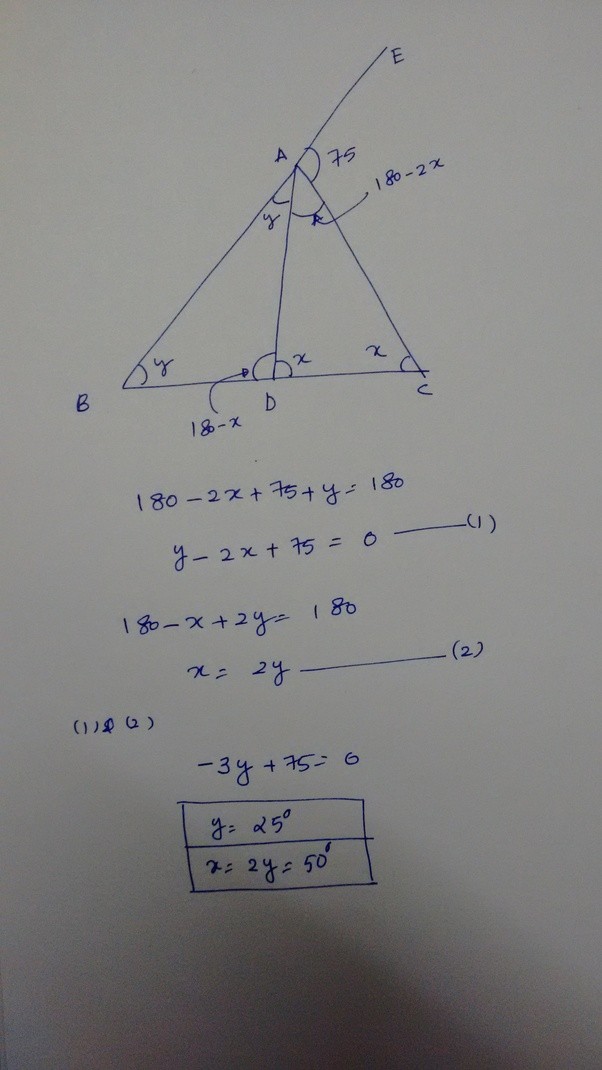 E
A
75
180-2x
y
y
x
x
B
D
C
180-x
180-2x+75+y= 180
y-2x+75 = 0 (1)
180-x+2y= 180
x= 2y (2)
(1)& (2)
-3y+75= 0
y= 25°
x= 2y= 50°